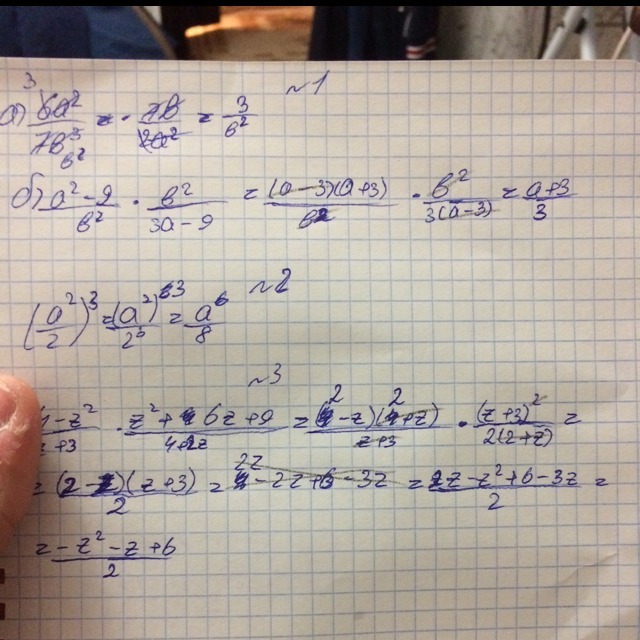 ~1
а) 6a²/7b³ · 7b/2a² = 3/b²
б) a²-9/b² · b²/3a-9 = (a-3)(a+3)/b² · b²/3(a-3) = a+3/3
~2
(a²/2)³ = (a²)³/2³ = a⁶/8
~3
4-z²/z+3 · z²+6z+9/4+2z = (2-z)(2+z)/z+3 · (z+3)²/2(2+z) =
= (2-z)(z+3)/2 = 2z-z²+6-3z/2 =
= -z²-z+6/2